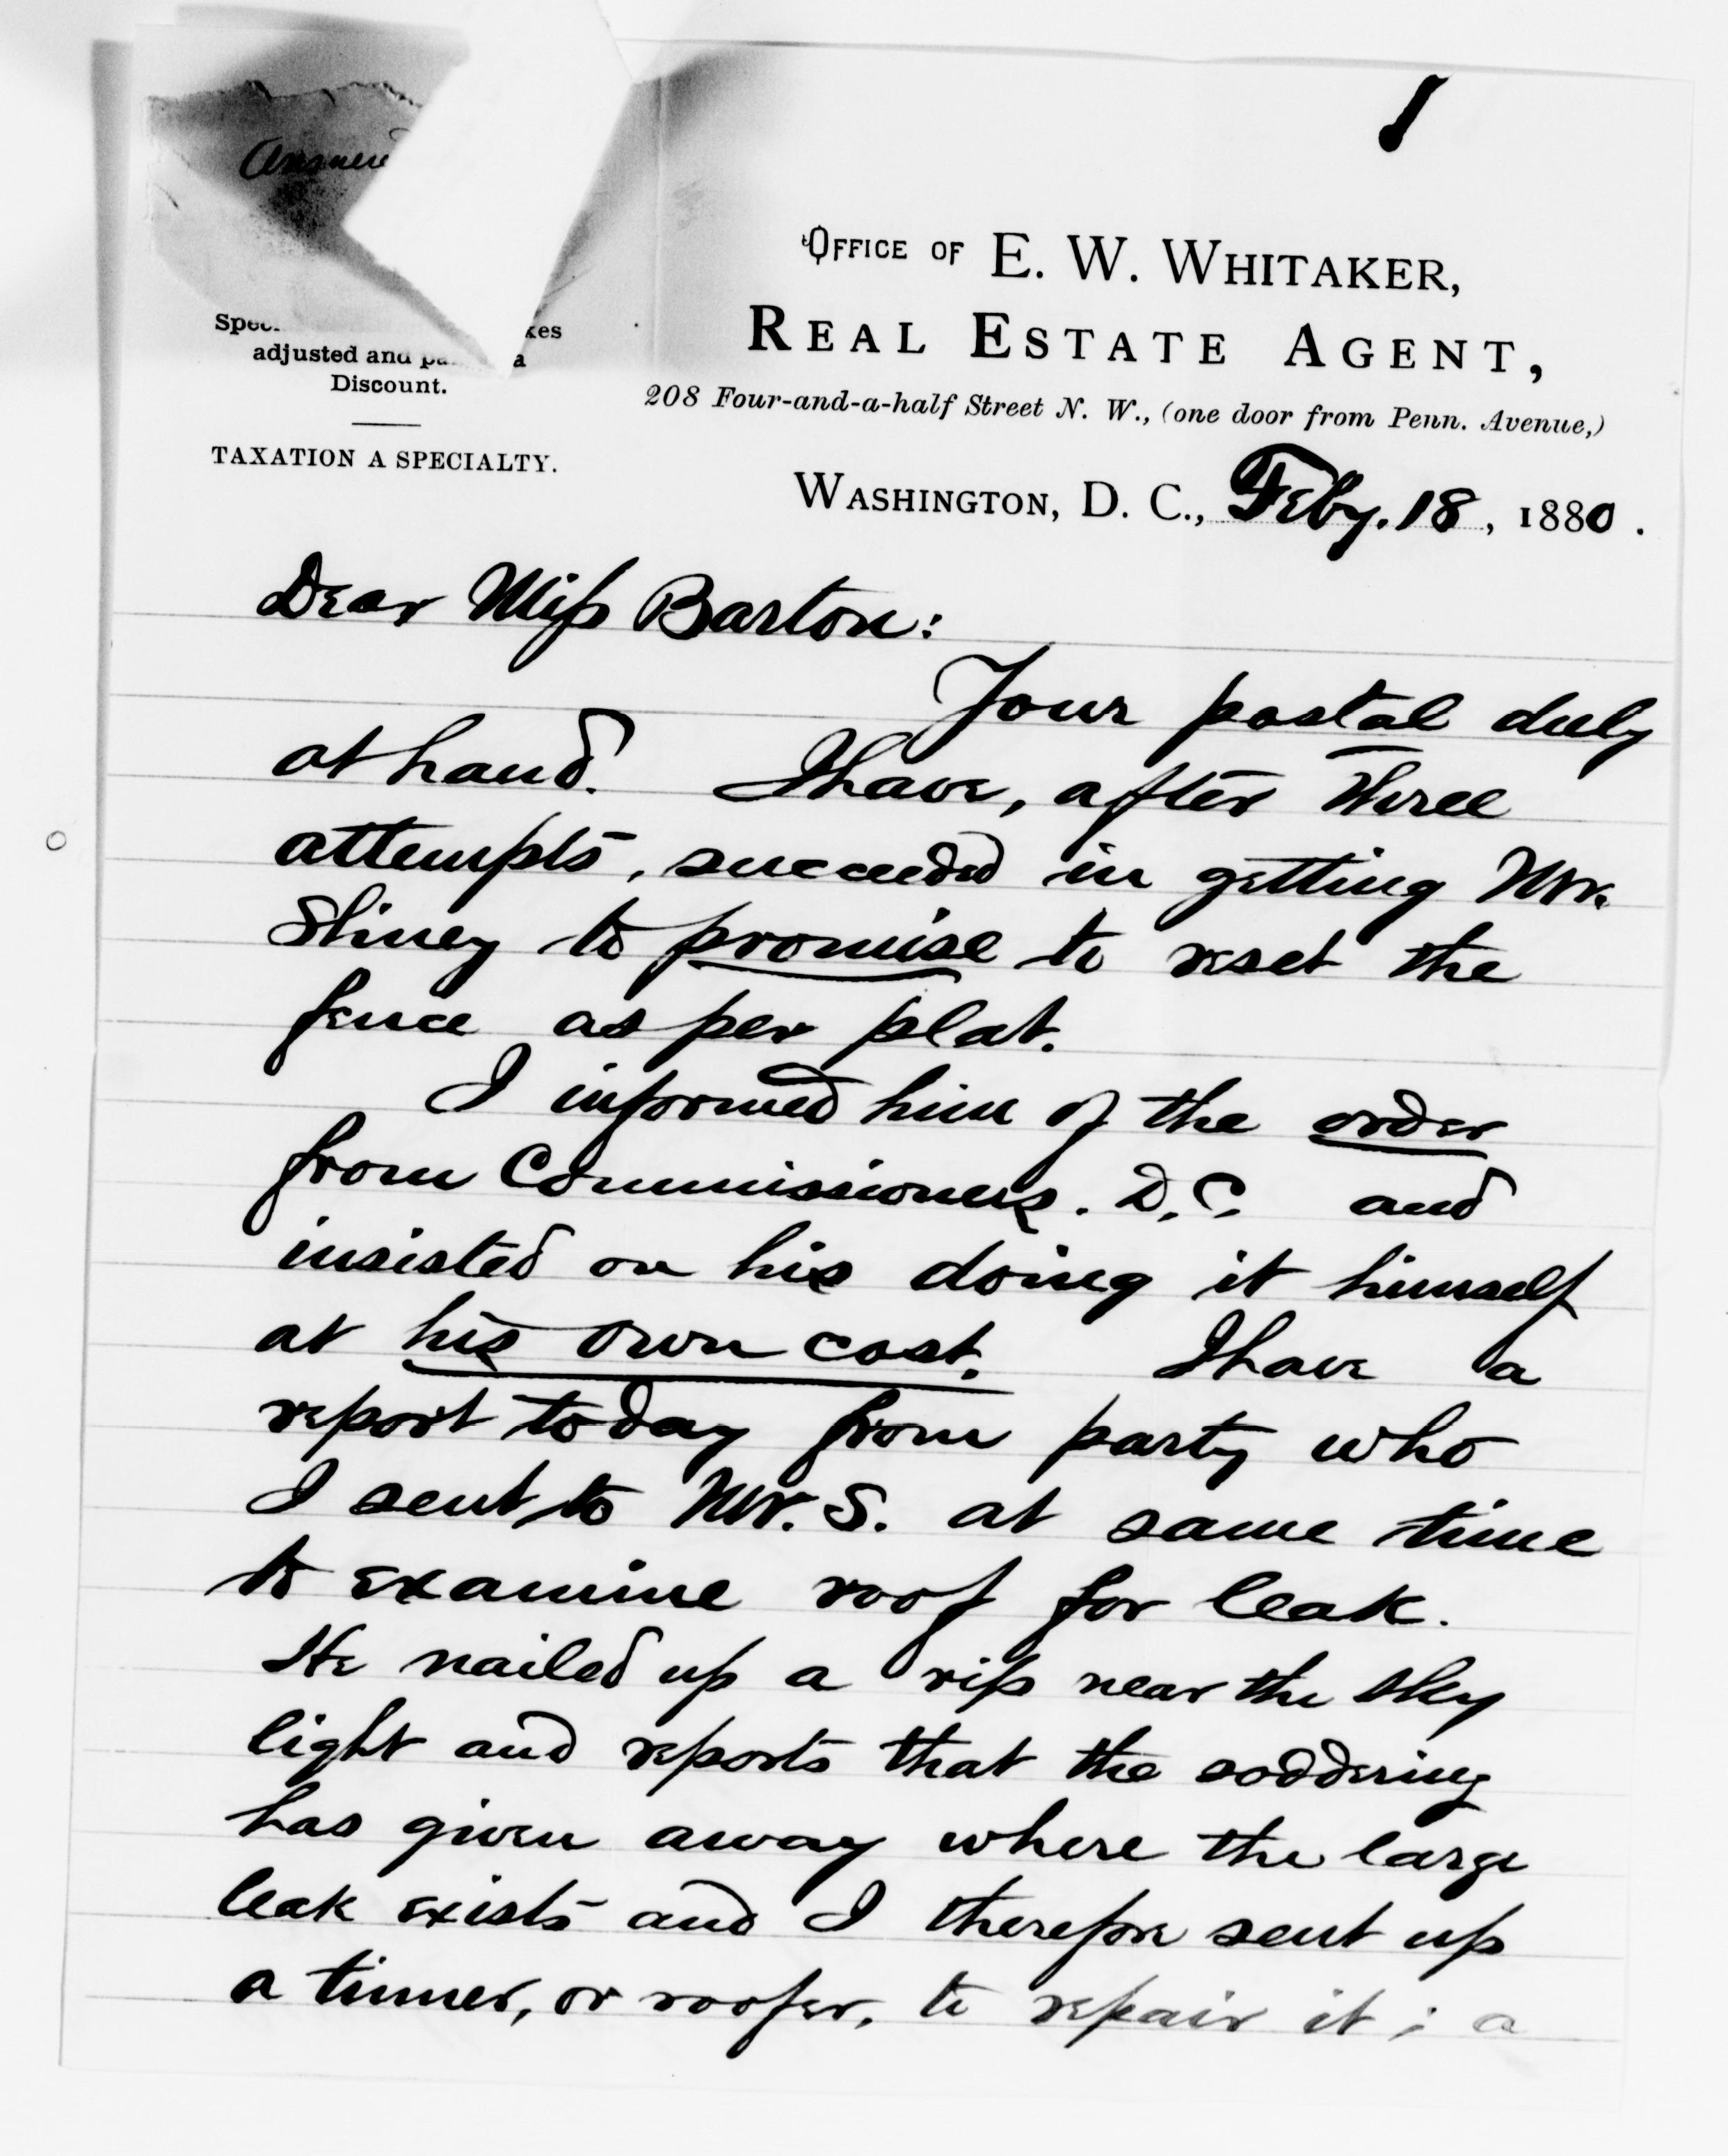 OFFICE OF E. W. WHITAKER,
REAL ESTATE AGENT,
208 Four-and-a-half Street N. W., (one door from Penn. Avenue,)
adjusted and
Discount.
TAXATION A SPECIALTY.
WASHINGTON, D. C., Feby. 18, 1880.
Dear Miss Barton:
Your postal duly
at hand. I have, after three
attempts, succeeded in getting Mr.
Shney to promise to reset the
fence as per plat.
I informed him of the order
from Commissioners. D.C. and
insisted on his doing it himself
at his own cost. I have a
report today from party who
I sent to Mr. S. at same time
to examine roof for leak.
He nailed up a rip near the sky
light and reports that the soddering
has given away where the large
leak exists and I therefore sent up
a tinner, or roofer, to repair it; a